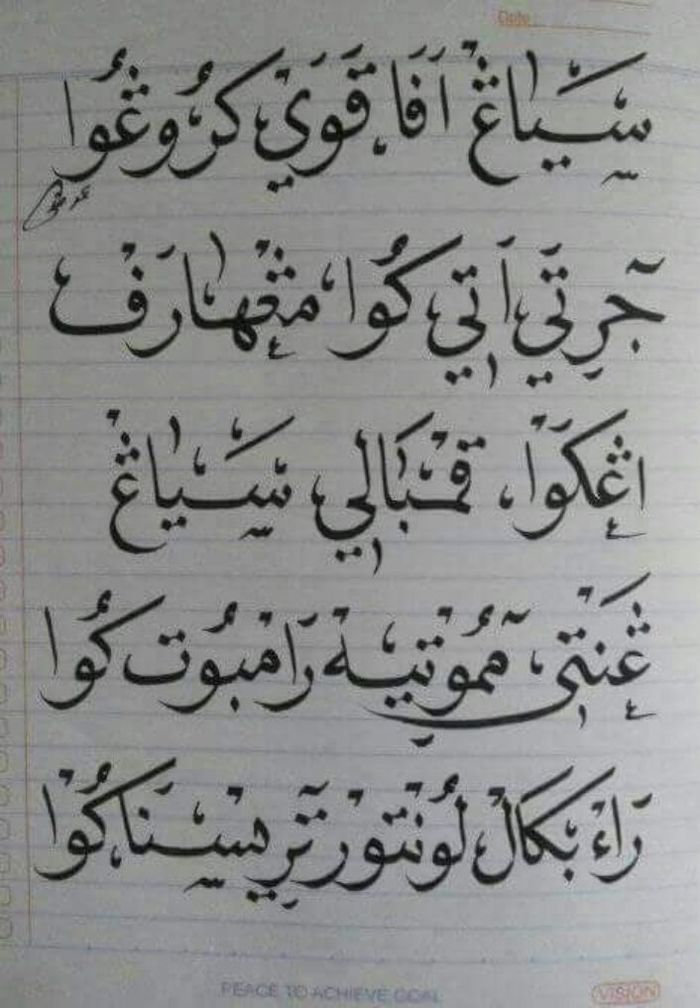 Date:
سَيِّاڠْ اَفَا، قَوَيْ كرُوڠُوا
جرِتَي اَتِي كُوا، مڠْهارَفْ
اڠكَوْا، قمْبَالِي سَيِّاڠْ
ڠَنْتِي، ممُوْتِيهْ رَامْبُوت كُوا
رَاءْ بَكَالْ لُونْتوْر ترِيسْنَاكُوْا
PEACE TO ACHIEVE GOAL
VISION